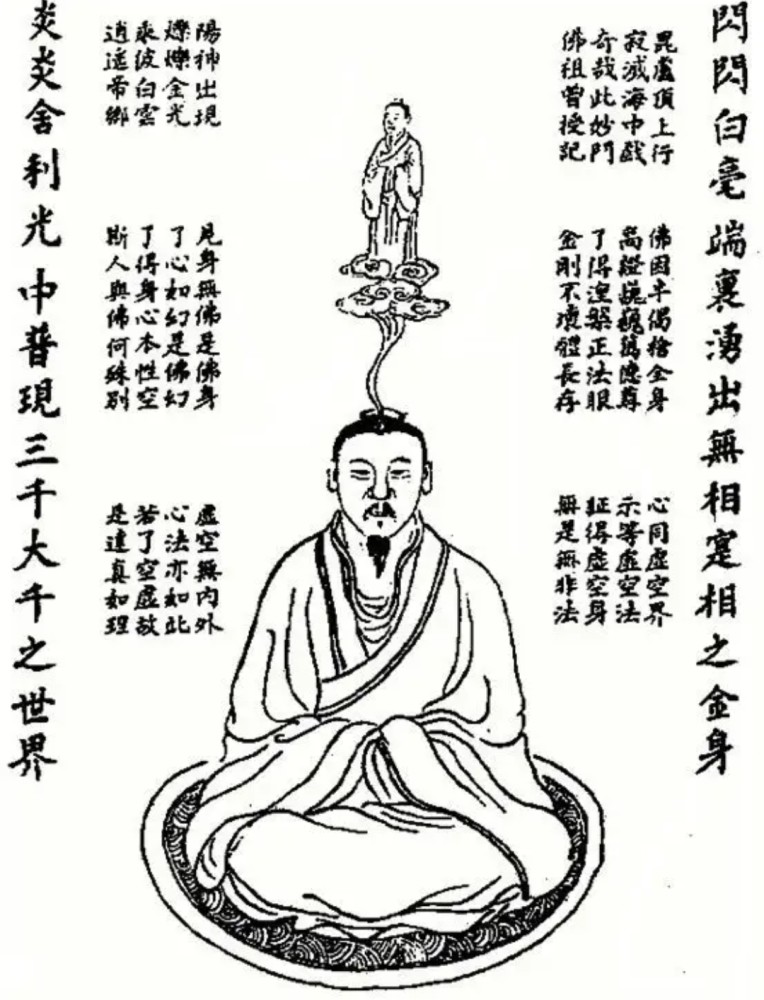 閃閃白毫端裏湧出無相寔相之金身
毘盧頂上行
寂滅海中戲
奇哉此妙門
佛祖曾授記
佛因半偈捨全身
了得涅槃正法眼
金剛不壞體長存
心同虛空界
示等虛空法
証得虛空身
無是無非法
陽神出現
爍爍金光
乘彼白雲
逍遙帝鄉
見身無佛是佛身
了心如幻是佛幻
了得身心本性空
斯人與佛何殊別
虛空無內外
心法亦如此
若了空虛故
是達真如理
炎炎舍利光中普現三千大千之世界